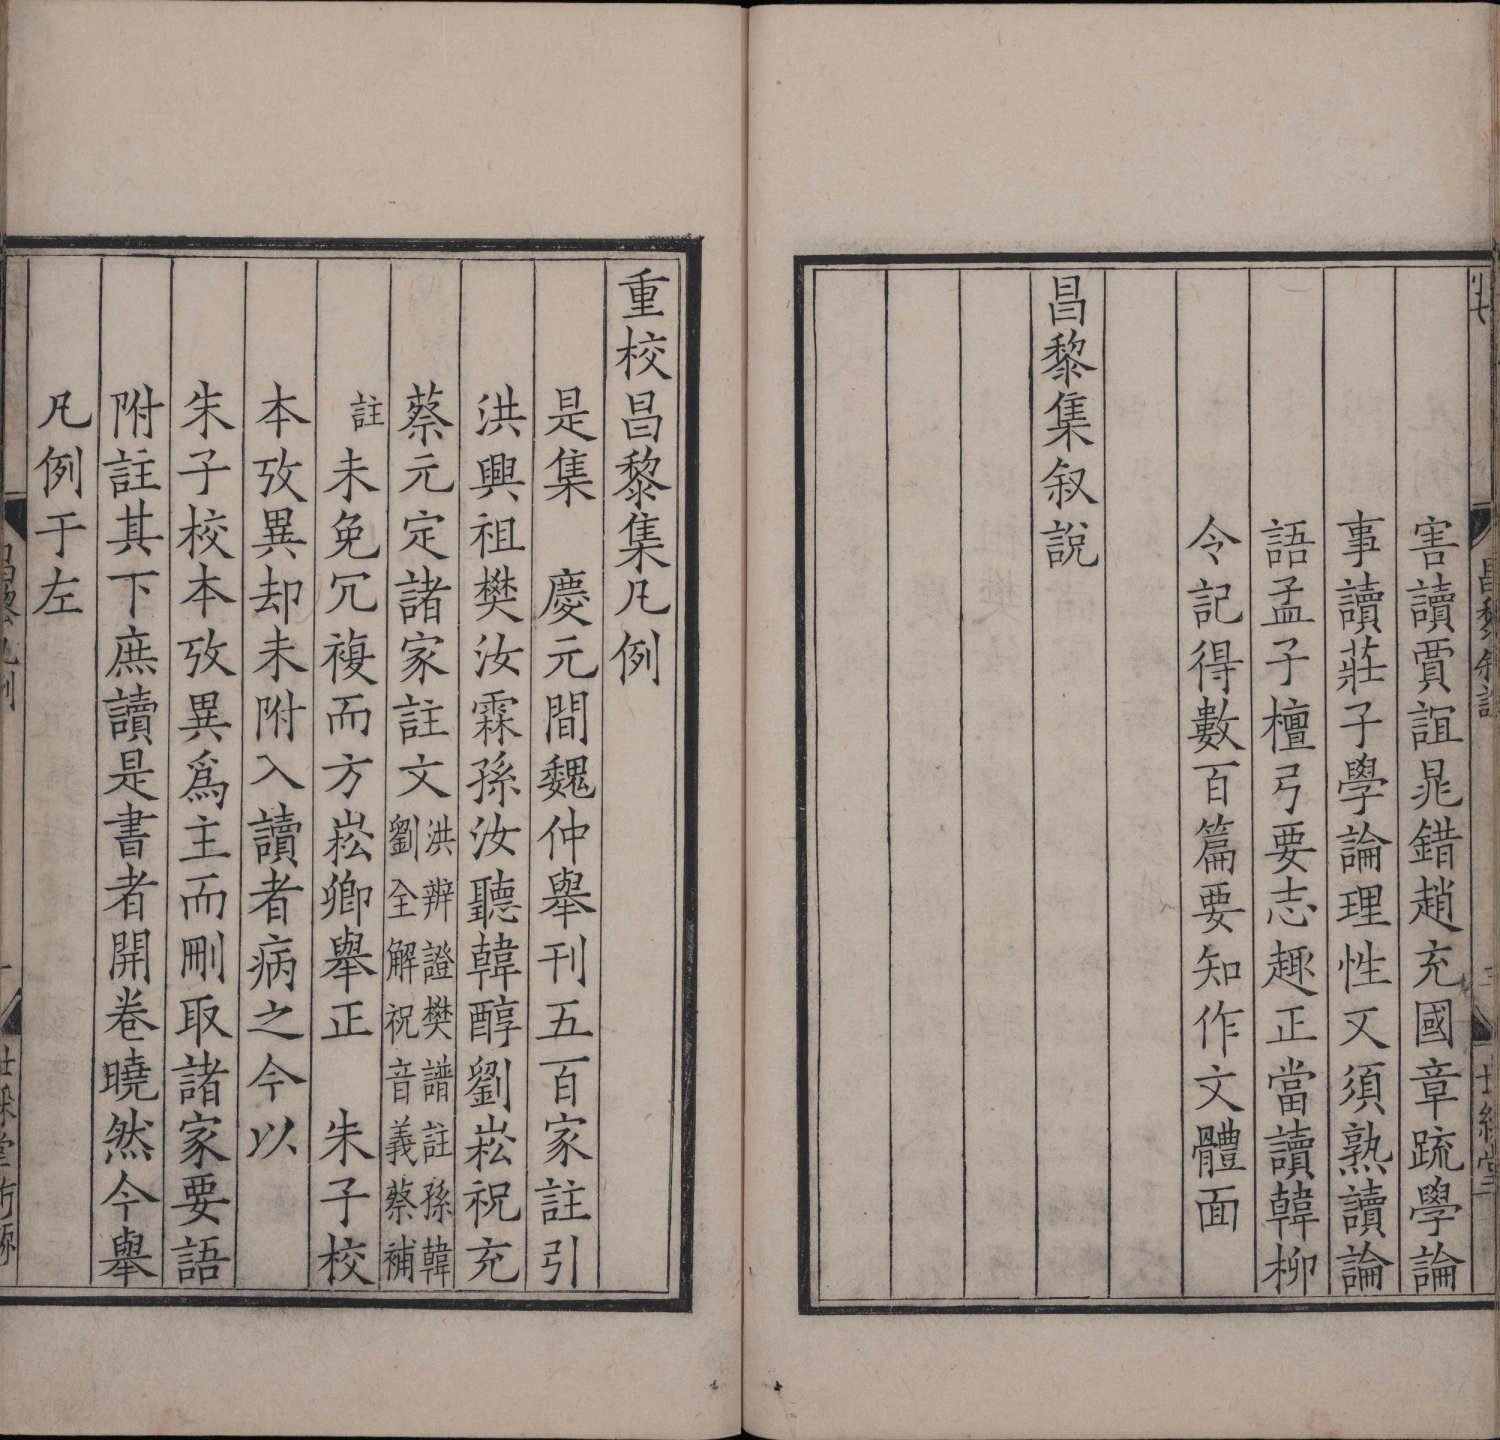 害讀賈誼晁錯趙充國章疏學論
事讀莊子學論理性又須熟讀論
語孟子檀弓要志趣正當讀韓柳
令記得數百篇要知作文體面
昌黎集叙說
重校昌黎集凡例
是集　慶元間魏仲舉刊五百家註引
洪興祖樊汝霖孫汝聽韓醇劉崧祝充
蔡元定諸家註文洪辨證樊譜註孫韓劉全解祝音義蔡補
註未免冗複而方崧卿舉正　朱子校
本攷異却未附入讀者病之今以
朱子校本攷異爲主而刪取諸家要語
附註其下庶讀是書者開卷曉然今舉
凡例于左